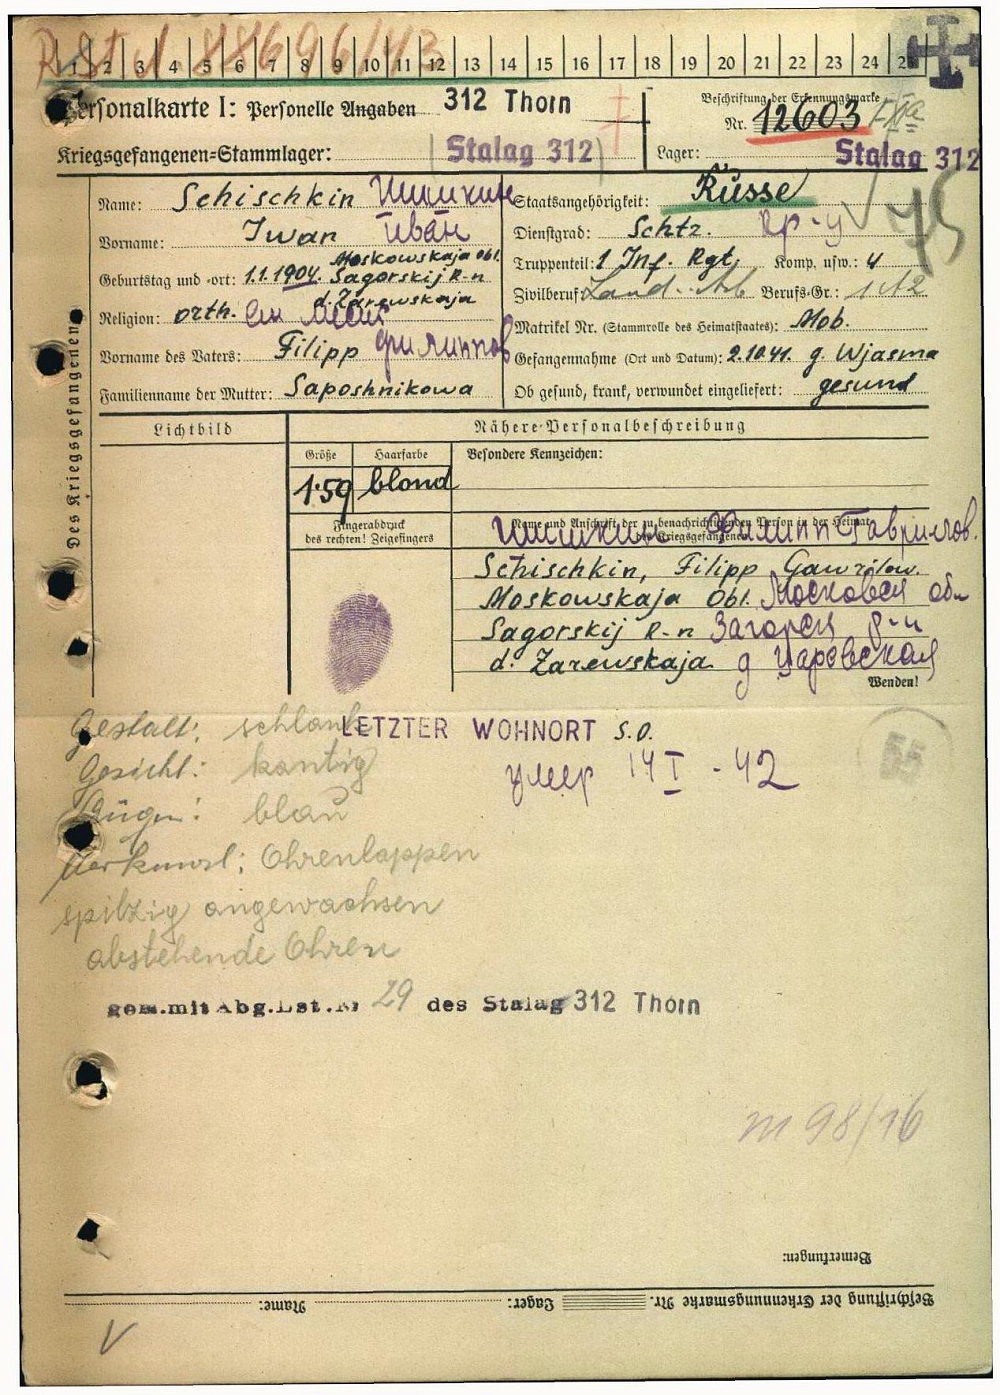 R St V 88696/43
1 2 3 4 5 6 7 8 9 10 11 12 13 14 15 16 17 18 19 20 21 22 23 24 25
Personalkarte I: Personelle Angaben 312 Thorn
Beschriftung der Erkennungsmarke
Nr. 12603
Kriegsgefangenen=Stammlager: Stalag 312
Lager: Stalag 312
Des Kriegsgefangenen
Name: Schischkin Шишкин
Vorname: Iwan Иван
Geburtstag und -ort: 1.1.1904. Moskowskaja Obl. Sagorskij R-n
d. Zarewskaja
Religion: orth.
Vorname des Vaters: Filipp Филиппов
Familienname der Mutter: Saposhnikowa
Staatsangehörigkeit: Russe
75
Dienstgrad: Schtz. кр-ц
Truppenteil: 1 Inf. Rgt. Komp. usw.: 4
Zivilberuf: Land. Arb Berufs-Gr.:
Matrikel Nr. (Stammrolle des Heimatstaates): Mob.
Gefangennahme (Ort und Datum): 2.10.41. g. Wjasma
Ob gesund, krank, verwundet eingeliefert: gesund
Lichtbild
Nähere Personalbeschreibung
Größe Haarfarbe Besondere Kennzeichen:
1.59 blond
Fingerabdruck
des rechten! Zeigefingers
Name und Anschrift der zu benachrichtigenden Person in der Heimat
des Kriegsgefangenen
Шишкин Филипп Гаврилов.
Schischkin, Filipp Gawrilow.
Moskowskaja Obl. Московская обл
Sagorskij R-n Загорск р-н
d. Zarewskaja д Царевская
Wenden!
Gestalt: schlank
LETZTER WOHNORT S.O.
Gesicht: kantig
умер 14 I - 42
55
Augen: blau
Merkmal: Ohrenlappen
spitzig angewachsen
abstehende Ohren
gem.mit Abg.Lst.Nr 29 des Stalag 312 Thorn
m 98/16
Bemerkungen:
Beschriftung der Erkennungsmarke Nr. Lager: Name:
V